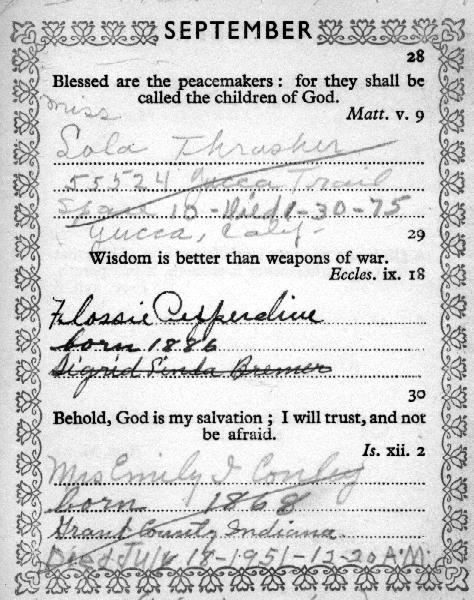 SEPTEMBER
28
Blessed are the peacemakers : for they shall be
called the children of God.
Matt. v. 9
Miss
Lola Thrasher
55524 Yucca Trail
Space 18 - Died 1-30-75
Yucca, Calif.
29
Wisdom is better than weapons of war.
Eccles. ix. 18
Flossie Pepperdine
born 1886
Sigrid Bremer
30
Behold, God is my salvation ; I will trust, and not
be afraid.
Is. xii. 2
Mrs Emily I Conley
born 1868
Grant County, Indiana
Died July 18-1951-12-20 A.M.